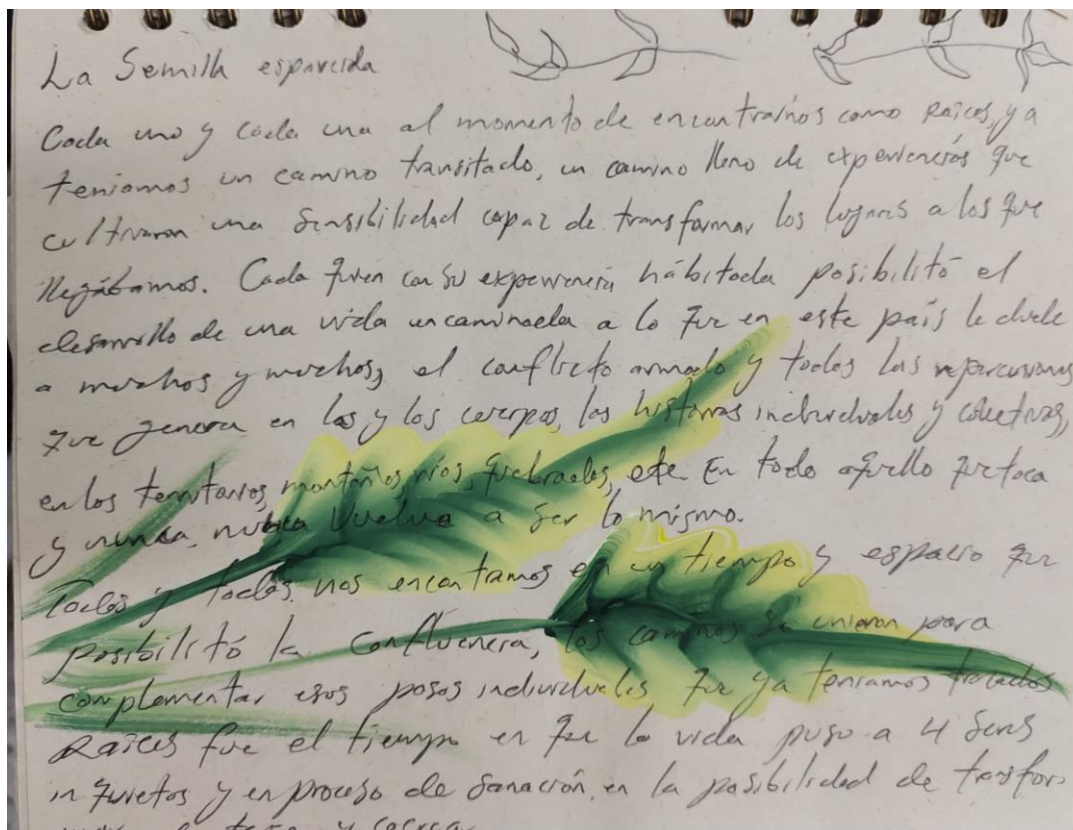 La Semilla esparcida
Cada uno y cada una al momento de encontrarnos como Raíces, ya
teníamos un camino transitado, un camino lleno de experiencias que
cultivaron una sensibilidad capaz de transformar los lugares a los que
llegábamos. Cada quien con su experiencia hábitada posibilitó el
desarrollo de una vida encaminada a lo que en este país le duele
a muchos y muchas, el conflicto armado y todas las repercusiones
que genera en las y los cuerpos, las historias individuales y colectivas,
en los territorios, montañas, ríos, quebradas, etc En todo aquello que toca
y nunca, nunca vuelve a ser lo mismo.
Todos y todas nos encontramos en un tiempo y espacio que
posibilitó la confluencia, los caminos se unieron para
complementar esos pasos individuales que ya teníamos trazados
Raíces fue el tiempo en que la vida puso a 4 seres
inquietos y en proceso de sanación, en la posibilidad de transfor